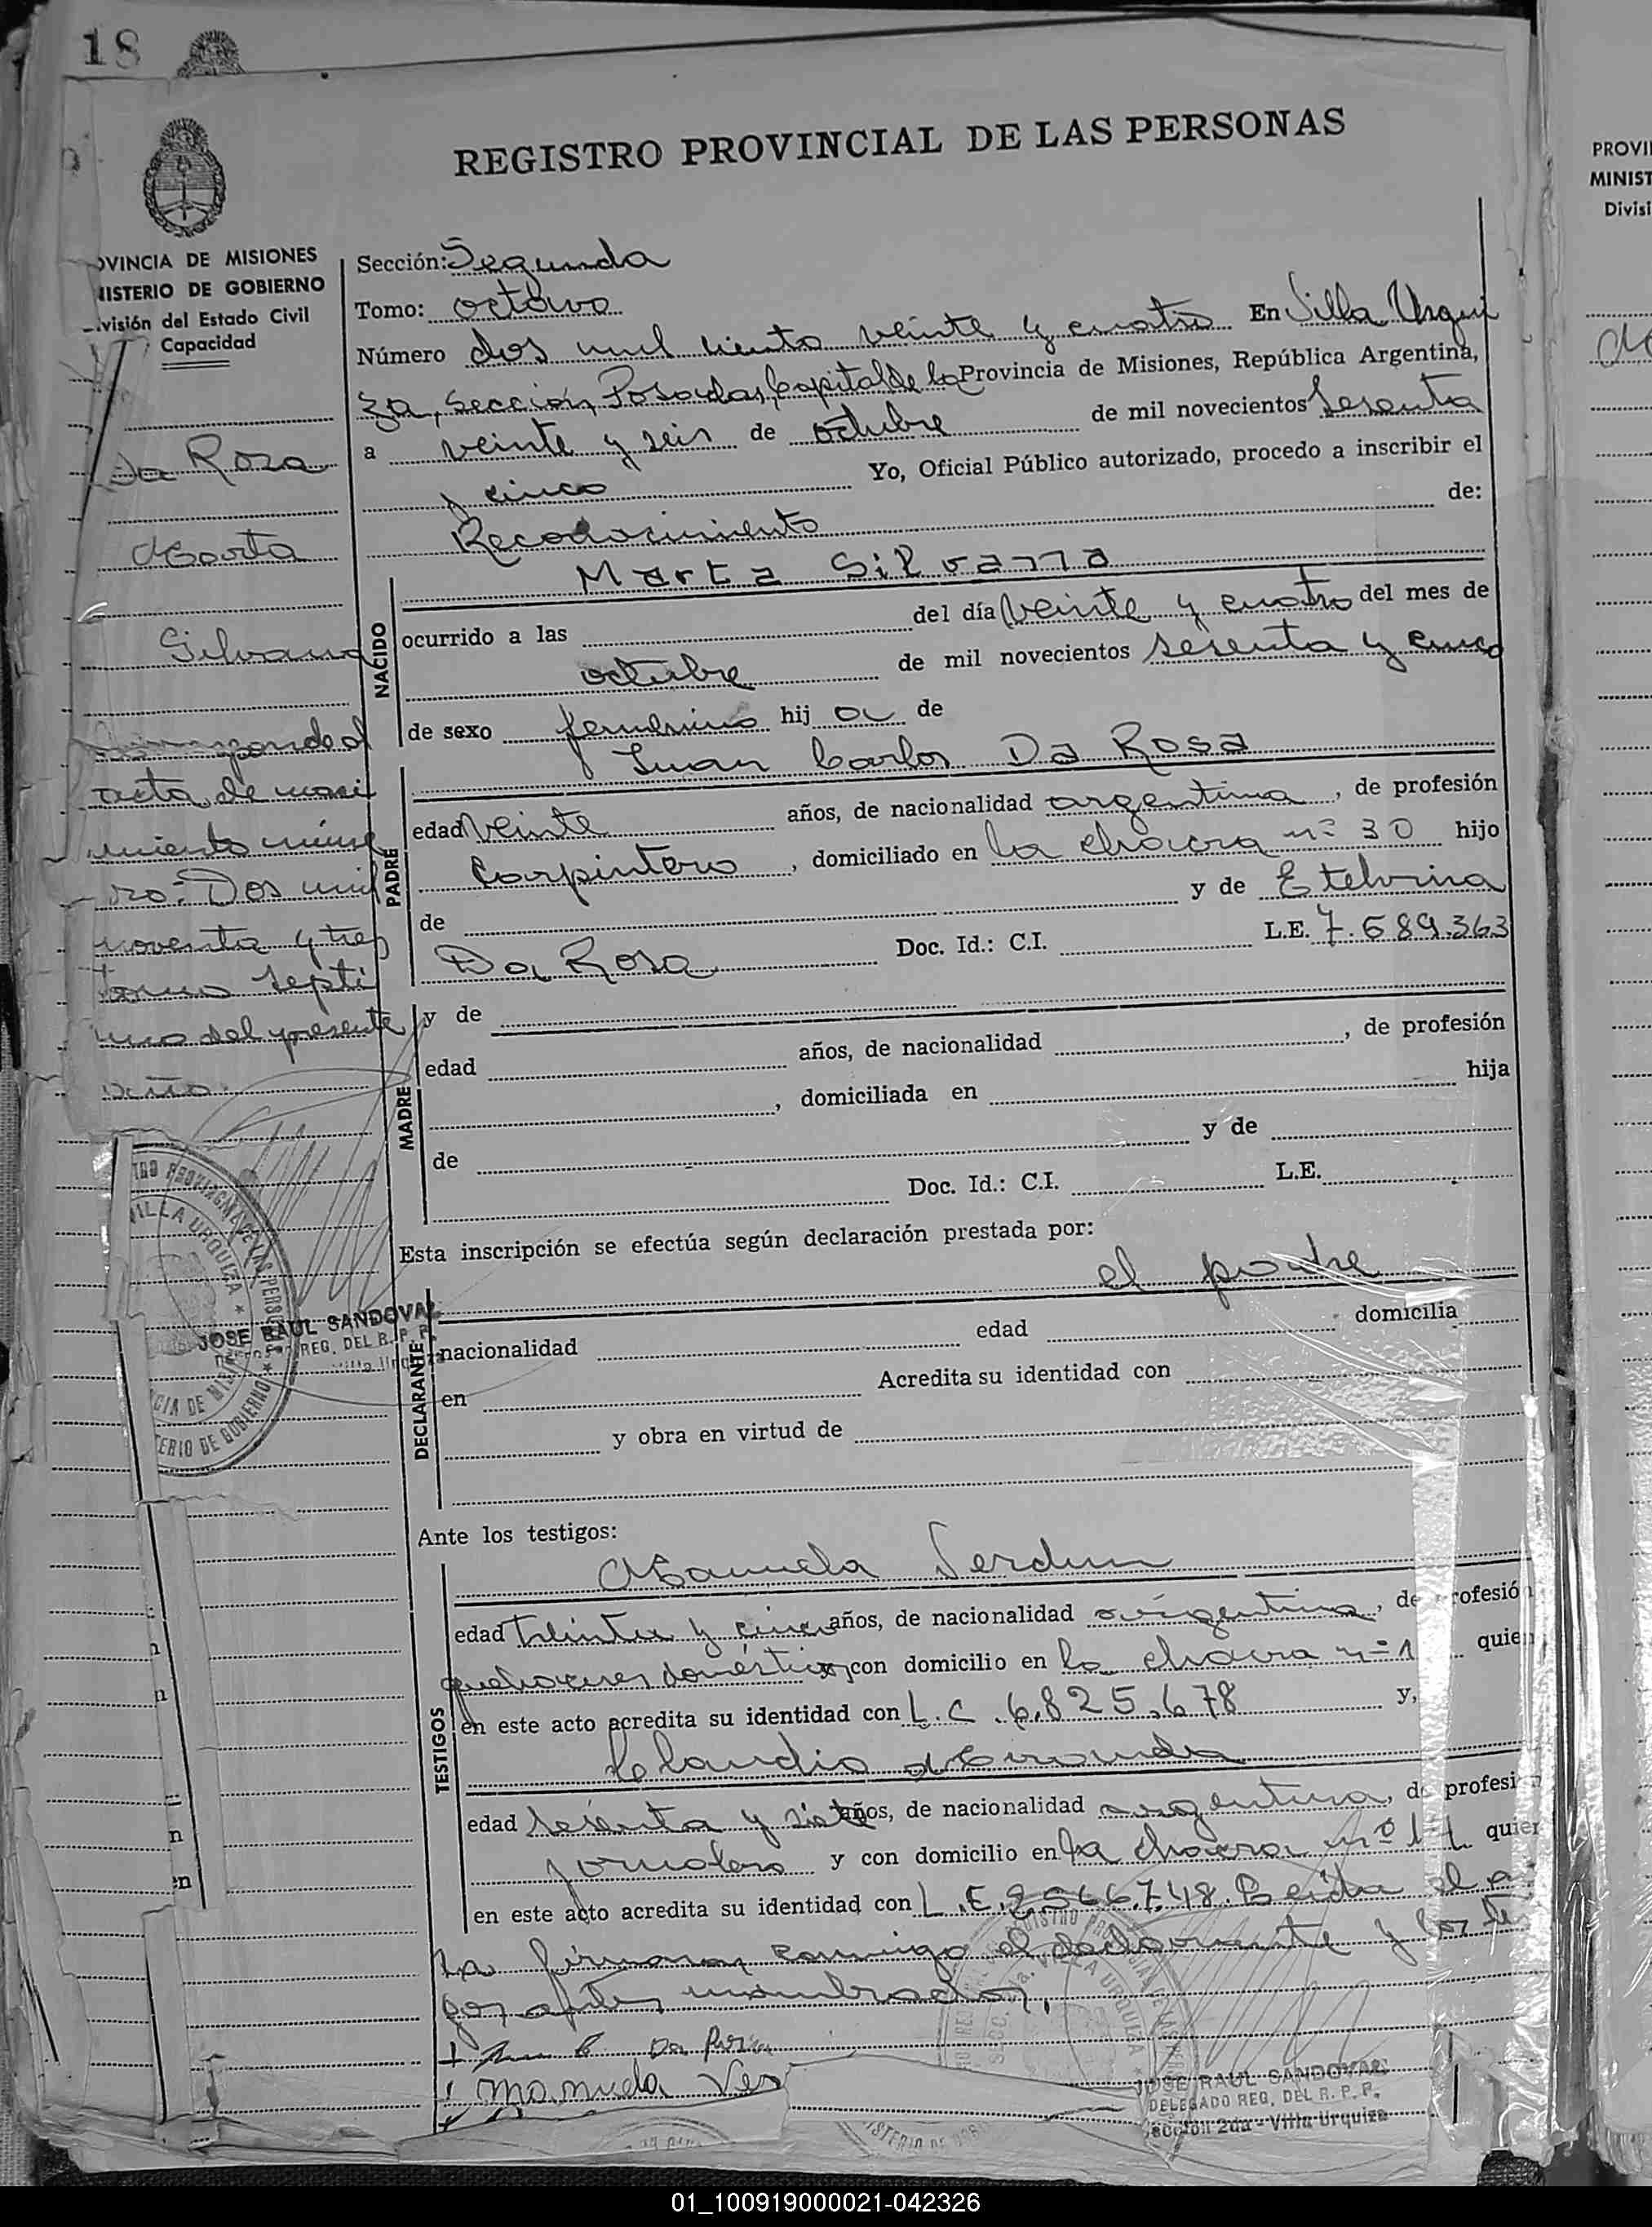 18
REGISTRO PROVINCIAL DE LAS PERSONAS
PROVI
MINIST
Divisi
OVINCIA DE MISIONES
NISTERIO DE GOBIERNO
ivisión del Estado Civil
Capacidad
Da Rosa
Marta
Silvana
gonde al
acta de naci
miento núme
ro: Dos mil
noventa y tres
tomo septi
mo del presente
año.
Sección: Segunda
Tomo: octavo
Número dos mil ciento veinte y cuatro En Villa Urqui
za, Sección, Posadas, Capital de la Provincia de Misiones, República Argentina,
a veinte y seis de octubre de mil novecientos sesenta
y cinco Yo, Oficial Público autorizado, procedo a inscribir el
Reconocimiento de:
NACIDO
Marta Silvana
ocurrido a las del día veinte y cuatro del mes de
octubre de mil novecientos sesenta y cinco
de sexo femenino hij a de
PADRE
Juan Carlos Da Rosa
edad veinte años, de nacionalidad argentina, de profesión
Carpintero, domiciliado en la chacra nº 30 hijo
de y de Etelvina
Da Rosa Doc. Id.: C.I. L.E. 7.689.363
MADRE
y de
edad años, de nacionalidad , de profesión
, domiciliada en hija
de y de
Doc. Id.: C.I. L.E.
Esta inscripción se efectúa según declaración prestada por:
el padre
DECLARANTE
nacionalidad edad domicilia
en Acredita su identidad con
y obra en virtud de
VILLA URQUIZA
JOSE RAUL SANDOVAL
REG. DEL R. P. P.
CIA DE MIS
TERIO DE GOBIERNO
Ante los testigos:
TESTIGOS
Manuela Verdun
edad treinta y cinco años, de nacionalidad argentina, de rofesión
quehaceres domésticos, con domicilio en la chacra nº 1 quien
en este acto acredita su identidad con L.C. 6.825.678 y,
Claudio Miranda
edad sesenta y siete años, de nacionalidad argentina, de profesi
jornalero y con domicilio en la chacra nº quien
en este acto acredita su identidad con L.E. Leída el ac
ta firman conmigo el declarante y los tes
gos antes nombrados.
Da Rosa
Manuela Ver
VILLA URQUIZA
JOSE RAUL SANDOVAL
DELEGADO REG. DEL R. P. P.
Sección 2da - Villa Urquiza
01_100919000021-042326